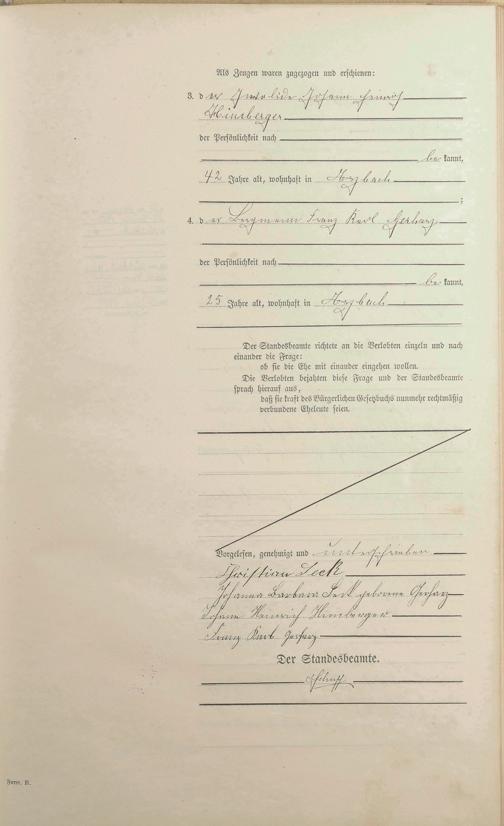 Als Zeugen waren zugezogen und erschienen:
3. der Invalide Johann Heinrich
Himberger
der Persönlichkeit nach
bekannt,
42 Jahre alt, wohnhaft in Arzbach
;
4. der Bergmann Franz Karl Gerharz
der Persönlichkeit nach
bekannt,
25 Jahre alt, wohnhaft in Arzbach
Der Standesbeamte richtete an die Verlobten einzeln und nach
einander die Frage:
ob sie die Ehe mit einander eingehen wollen.
Die Verlobten bejahten diese Frage und der Standesbeamte
sprach hierauf aus,
daß sie kraft des Bürgerlichen Gesetzbuchs nunmehr rechtmäßig
verbundene Eheleute seien.
Vorgelesen, genehmigt und unterschrieben
Christian Seck
Johanna Barbara Seck geborene Gerharz
Johann Heinrich Himberger
Franz Karl Gerharz
Der Standesbeamte.
Form. B.